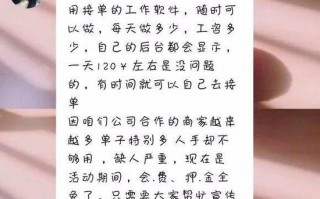 用接单的工作软件，随时可
以做，每天做多少，工咨多
少，自己的后台都会显示，
一天120￥左右是没问题
的，有时间就可以自己去接
单
因咱们公司合作的商家越来
越多 单子特别多 人手却不
够用，缺人严重，现在是
活动期间，会.费、押.金全
免了，只需要大家帮忙宣传